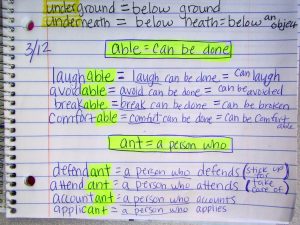 underground = below ground
underneath = below neath = below an object
3/12
able = can be done
laughable = laugh can be done = can laugh
avoidable = avoid can be done = can be avoided
breakable = break can be done = can be broken
comfortable = comfort can be done = can be comfort able
ant = a person who
defendant = a person who defends (stick up for)
attendant = a person who attends (take care of)
accountant = a person who accounts
applicant = a person who applies